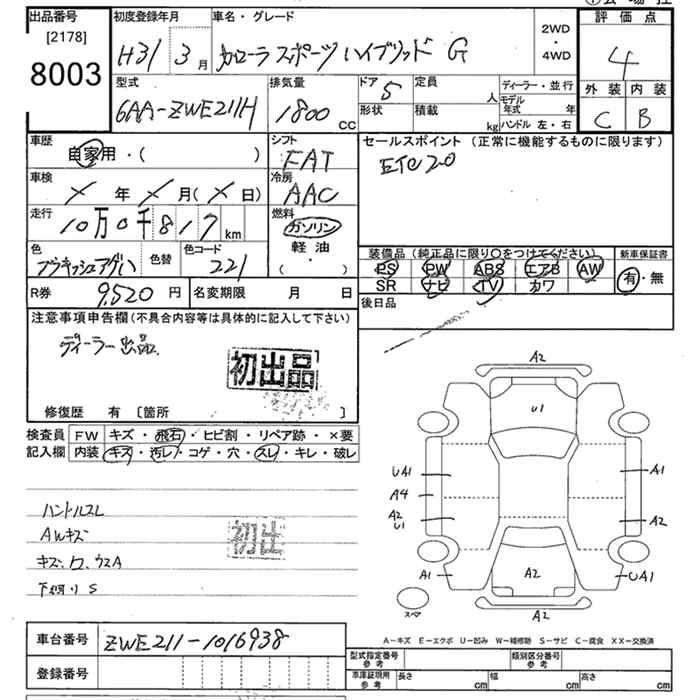 出品番号
[2178]
8003
初度登録年月
H31 3月
車名・グレード
カローラスポーツハイブリッド G
2WD
・
4WD
評価点
4
外装 内装
C B
型式
6AA-ZWE211H
排気量
1800 CC
ドア 5
形状
定員 人
積載 kg
ディーラー・並行
モデル年式 年
ハンドル 左・右
車歴
自家用・( )
シフト
FAT
セールスポイント(正常に機能するものに限ります)
ETC2.0
車検
× 年 × 月(× 日)
冷房
AAC
走行
10万0千817km
燃料
ガソリン
軽油
( ・ )
色
色替
色コード
221
装備品(純正品に限り○をつけてください)
PS PW ABS エアB AW
SR ナビ TV カワ
新車保証書
有・無
R券 9,520円
名変期限 月 日
後日品
注意事項申告欄(不具合内容等は具体的に記入して下さい)
ディーラー出品
初出品
修復歴 有 [箇所 ]
検査員記入欄
FW キズ・飛石・ヒビ割・リペア跡・×要
内装 キズ・汚レ・コゲ・穴・スレ・キレ・破レ
ハンドルスレ
AWキズ
初出
A2
U1
UA1 A1
A4
A2
U1
A2
A1 A2 UA1
スペア
A2
A-キズ E-エクボ U-凹み W-補修跡 S-サビ C-腐食 XX-交換済
車台番号 ZWE211-1016938
登録番号
型式指定番号
参考
類別区分番号
参考
車庫証明用
参考
長さ cm 幅 cm 高さ cm